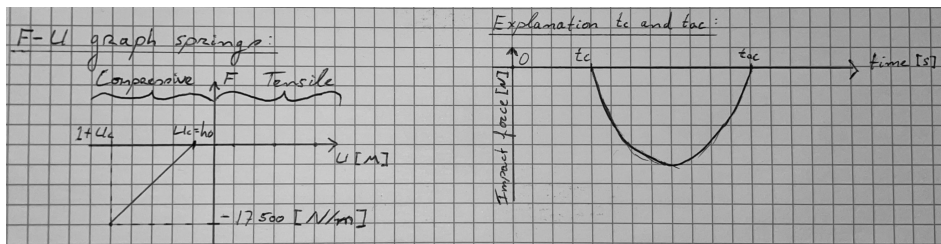 F-U graph springs:
Compressive F Tensile
1+uc uc=ho
U [M]
-17500 [N/m]
Explanation tc and tac:
0 tc tac time [s]
Impact force [N]